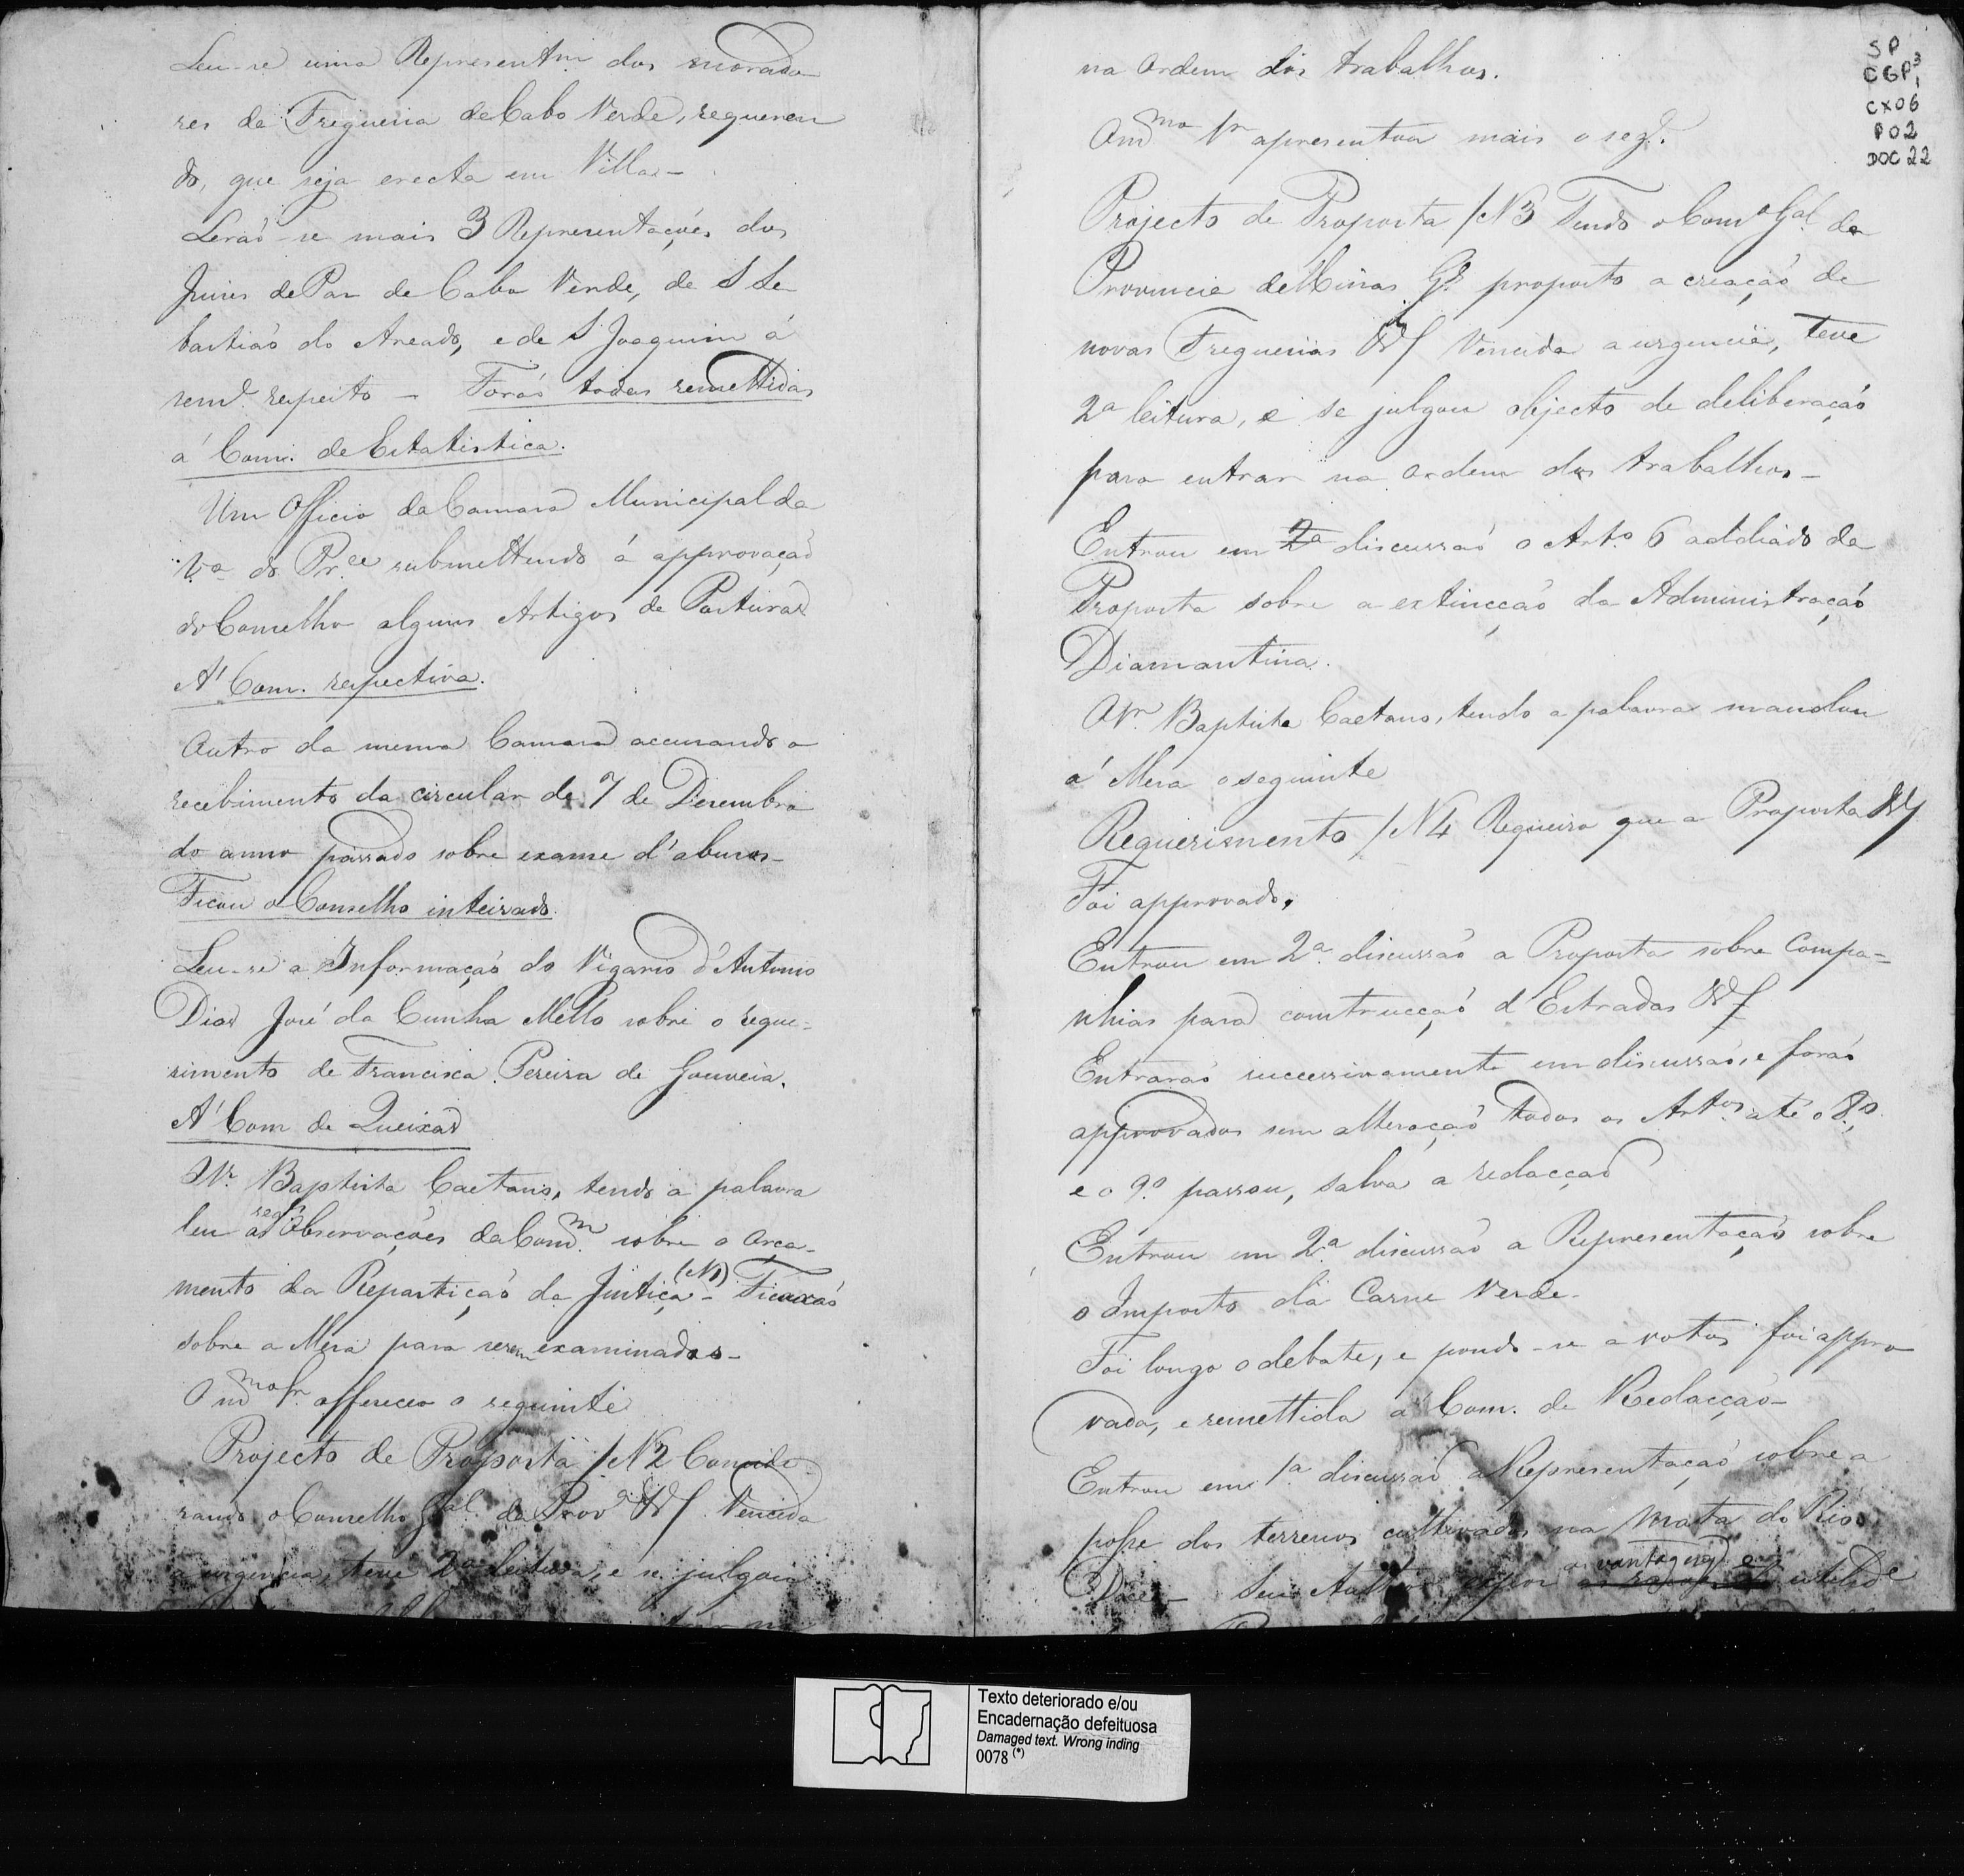 Leu-se uma Representm. dos morado
res da Freguesia de Cabo Verde, requeren
do, que seja erecta em Villa-
Leraõ-se mais 3 Representações dos
Juizes de Paz de Cabo Verde, de S Se
bastiaõ do Areado, e de S Joaquim á
semᵉ respeito - Foraõ todas remettidas
á Com. de Estatistica.
Um Officio da Camara Municipal da
Vª do Pr.ce submettendo á approvaçaõ
do Conselho alguns Artigos de Posturas
A' Com. respectiva.
Outro da mesma Camara accusando o
recebimento da circular de 7 de Dezembro
do anno passado sobre exame d'abusos-
Ficou o Conselho inteirado.
Leu-se a Informaçaõ do Vigario d'Antonio
Dias José da Cunha Mello sobre o reque-
rimento de Francisca Pereira de Gouveia.
A' Com de Queixas
O Sr. Baptista Caetano, tendo a palavra
leu as segᵗ Observações da Comᵐ sobre o Orça-
mento da Repartiçaõ da Justiça (N1) - Ficaraõ
sobre a Mesa para serem examinadas-
O mᵐᵒ Sr. offereceo o seguinte
Projecto de Proposta /N2 Conside
rando o Conselho Gal. da Provª &&/ Vencida
a urgencia, teve 2ª Leitura, e se julgou
na Ordem dos trabalhos.
O mᵐᵒ Sr apresentou mais o segᵗ.
Projecto de Proposta /N3 Tendo o Consº Gal da
Provincia de Minas Gs. proposto a creaçaõ de
novas Freguesias &&/ Vencida a urgencia, teve
2ª leitura, e se julgou objecto de deliberaçaõ
para entrar na ordem dos trabalhos-
Entrou em 2ª discussaõ o Artº 6 addiado da
Proposta sobre a extincçaõ da Administraçaõ
Diamantina.
O Sr. Baptista Caetano, tendo a palavra mandou
á Mesa o seguinte
Requerimento /N4 Requeiro que a Proposta &&/
Foi approvado.
Entrou em 2ª discussaõ a Proposta sobre Compa-
nhias para construcçaõ d'Estradas &&/
Entraraõ successivamente em discussaõ, e foraõ
approvados sem alteraçaõ todos os Artos até o 8º,
e o 9º passou, salva a redacçaõ
Entrou em 2ª discussaõ a Representaçaõ sobre
o Imposto da Carne Verde-
Foi longo o debate, e pondo-se a votos foi appro
vada, e remettida á Com. de Redacçaõ-
Entrou em 1ª discussaõ a Representaçaõ sobre a
posse dos terrenos cultivados na Mata do Rio
Doce- Seu Author as vantagens e utilide
SP
CGP³1
CX06
P02
DOC 22
Texto deteriorado e/ou
Encadernação defeituosa
Damaged text. Wrong inding
0078 (*)